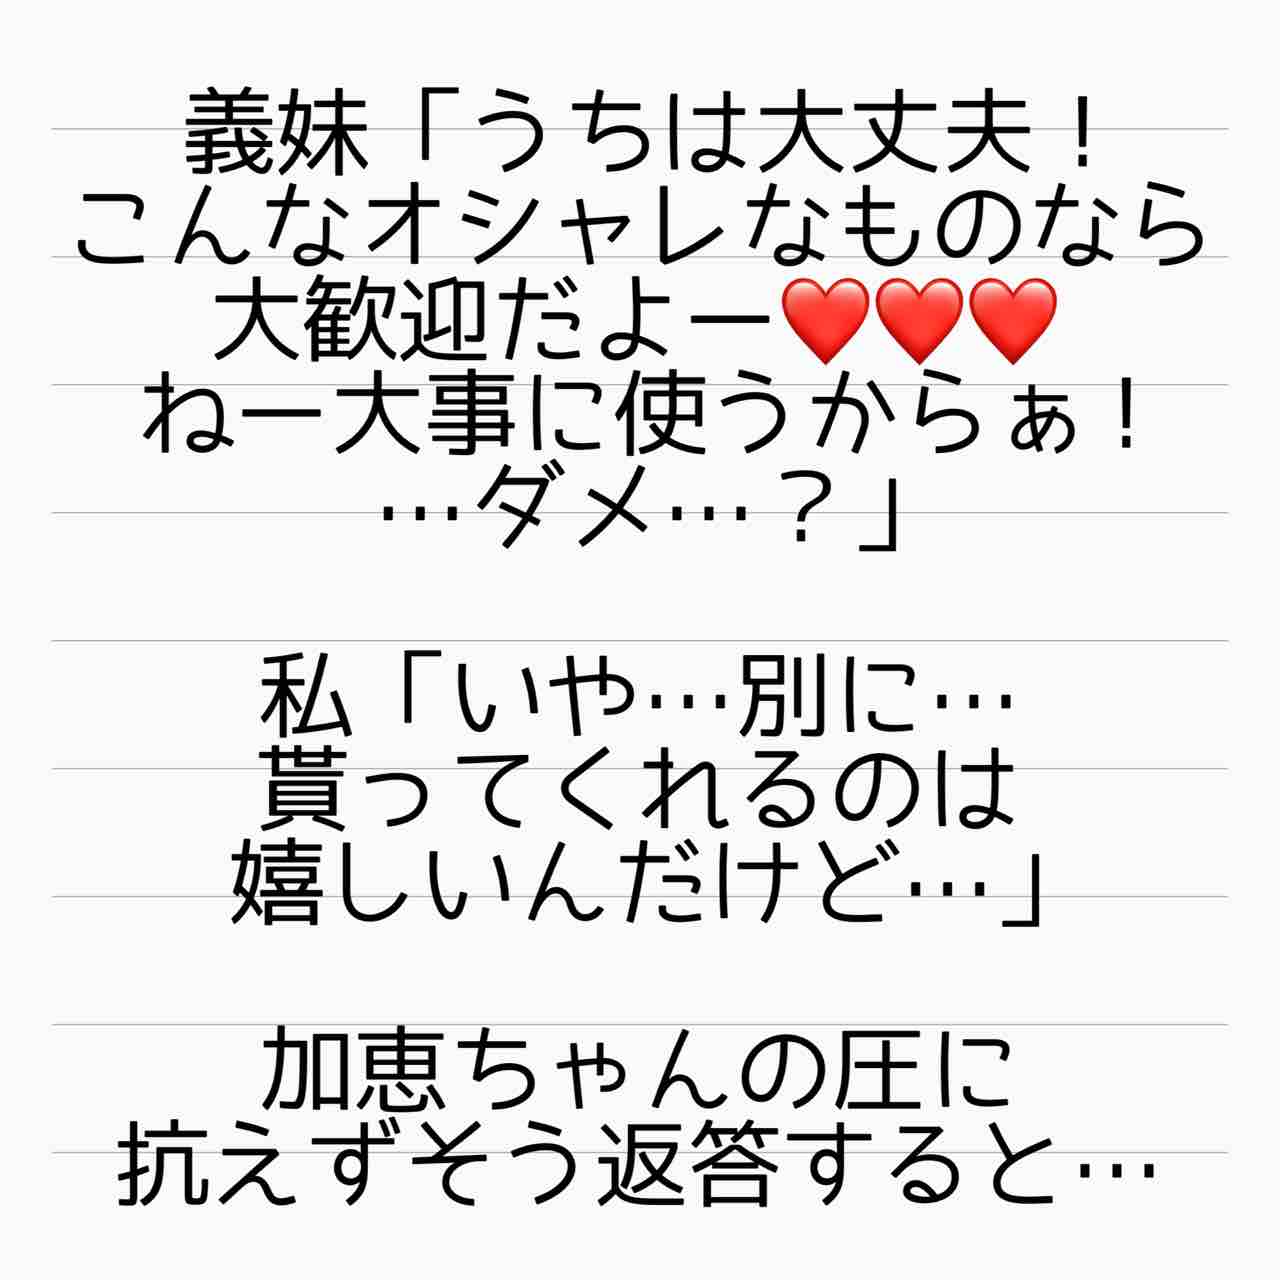 義妹「うちは大丈夫！
こんなオシャレなものなら
大歓迎だよー❤️❤️❤️
ねー大事に使うからぁ！
…ダメ…？」
私「いや…別に…
貰ってくれるのは
嬉しいんだけど…」
加恵ちゃんの圧に
抗えずそう返答すると…